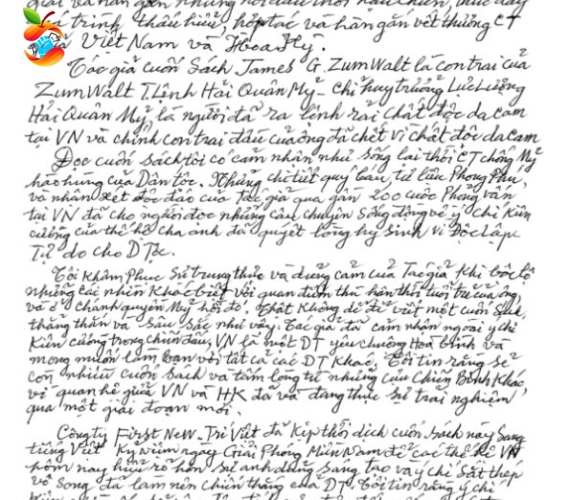 giải và hàn gắn những nỗi đau thời hậu chiến, thúc đẩy
quá trình thấu hiểu, hợp tác và hàn gắn vết thương CT
Việt Nam và Hoa Kỳ.
Tác giả cuốn sách James G. ZumWalt là con trai của
ZumWalt T.Lệnh Hải Quân Mỹ - Chỉ huy trưởng Lực Lượng
Hải Quân Mỹ, là người đã ra lệnh rải chất độc da cam
tại VN và chính con trai đầu của ông đã chết vì chất độc da cam
Đọc cuốn sách tôi có cảm nhận như sống lại thời CT chống Mỹ
hào hùng của Dân tộc. Những chi tiết quý báu, tư liệu phong phú,
và nhận xét độc đáo của Tác giả qua gần 200 cuộc Phỏng vấn
tại VN đã cho người đọc những câu chuyện sống động về ý chí kiên
cường của thế hệ cha anh đã quyết lòng hy sinh vì Độc Lập
Tự do cho D Tộc.
Tôi Khâm Phục Sự trung thực và dũng cảm của Tác giả khi bộc lộ
những cái nhìn khác biệt với quan điểm thù hận thời tuổi trẻ của ông
và ở chánh quyền Mỹ hồi đó. Thật Không dễ để viết một cuốn sách
thẳng thắn và sâu sắc như vậy. Tác giả đã cảm nhận ngoài ý chí
kiên cường trong chiến đấu, VN là một DT yêu chuộng Hoà bình và
mong muốn làm bạn với tất cả các DT khác, Tôi tin rằng sẽ
còn nhiều cuốn sách và tấm lòng từ những cựu chiến Binh khác,
về quan hệ giữa VN và HK đã và đang thực sự trải nghiệm
qua một giai đoạn mới.
Công ty First New - Trí Việt đã kịp thời dịch cuốn sách này sang
tiếng Việt kỷ niệm ngày Giải Phóng Miền Nam để các thế hệ VN
hôm nay hiểu rõ hơn sự anh dũng sáng tạo và ý chí sắt thép
vô song đã làm nên chiến thắng của DT. Tôi tin rằng ý chí